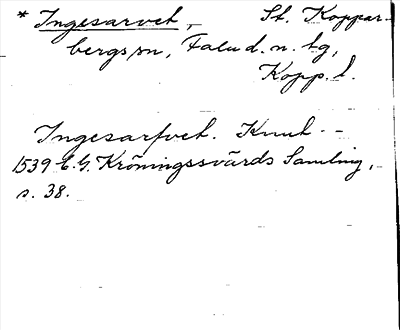 * Ingesarvet, St. Koppar-
bergs sn, Falu d. n. tg,
Kopp. l.
Ingesarfvet. Knut. –
1539 E. G. Kröningssvärds Samling,
s. 38.